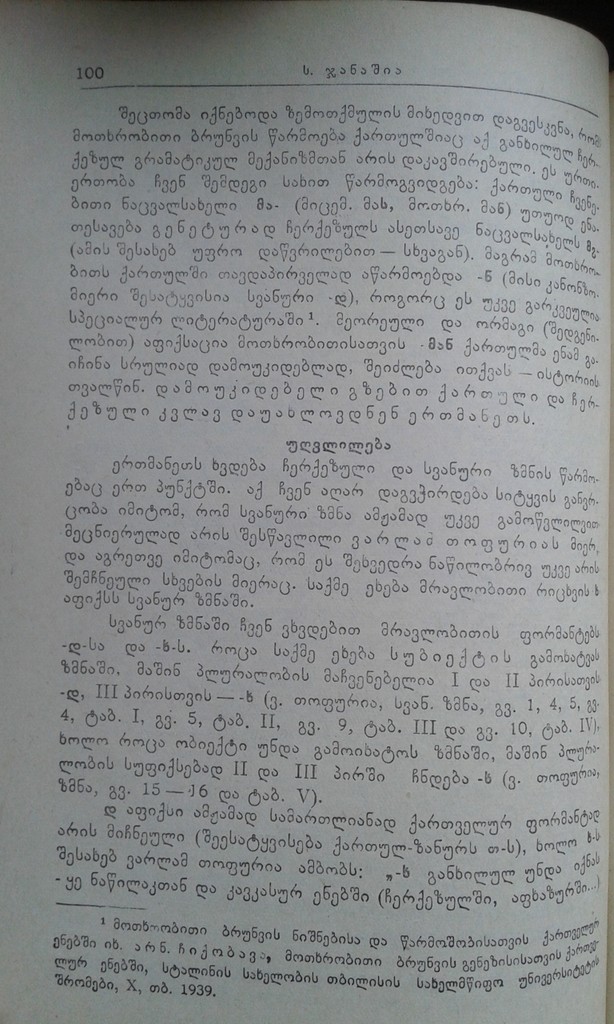 100
ს. ჯანაშია
შეცთომა იქნებოდა ზემოთქმულის მიხედვით დაგვესკვნა, რომ
მოთხრობითი ბრუნვის წარმოება ქართულშიაც აქ განხილულ ჩერ-
ქეზულ გრამატიკულ მექანიზმთან არის დაკავშირებული. ეს ურთი-
ერთობა ჩვენ შემდეგი სახით წარმოგვიდგება: ქართული ჩვენე-
ბითი ნაცვალსახელი მა- (მიცემ. მას, მოთხრ. მან) უთუოდ ენა-
თესავება გენეტურად ჩერქეზულს ასეთსავე ნაცვალსახელს
(ამის შესახებ უფრო დაწვრილებით — სხვაგან). მაგრამ მოთხრო-
ბითს ქართულში თავდაპირველად აწარმოებდა -ნ (მისი კანონზო-
მიერი შესატყვისია სვანური -დ), როგორც ეს უკვე გარკვეულია
სპეციალურ ლიტერატურაში¹. მეორეული და ორმაგი (შედგენი-
ლობით) აფიქსაცია მოთხრობითისათვის -მან ქართულმა ენამ გა-
იჩინა სრულიად დამოუკიდებლად, შეიძლება ითქვას — ისტორიის
თვალწინ. დამოუკიდებელი გზებით ქართული და ჩერ-
ქეზული კვლავ დაუახლოვდნენ ერთმანეთს.
უღვლილება
ერთმანეთს ხვდება ჩერქეზული და სვანური ზმნის წარმო-
ებაც ერთ პუნქტში. აქ ჩვენ აღარ დაგვჭირდება სიტყვის განვრ-
ცობა იმიტომ, რომ სვანური ზმნა ამჟამად უკვე გამოწვლილვით
მეცნიერულად არის შესწავლილი ვარლამ თოფურიას მიერ,
და აგრეთვე იმიტომაც, რომ ეს შეხვედრა ნაწილობრივ უკვე არის
შემჩნეული სხვების მიერაც. საქმე ეხება მრავლობითი რიცხვის ხ
აფიქსს სვანურ ზმნაში.
სვანურ ზმნაში ჩვენ ვხვდებით მრავლობითის ფორმანტებს
-დ-სა და -ხ-ს. როცა საქმე ეხება სუბიექტის გამოხატვას
ზმნაში, მაშინ პლურალობის მაჩვენებელია I და II პირისათვის
-დ, III პირისთვის — -ხ (ვ. თოფურია, სვან. ზმნა, გვ. 1, 4, 5, გვ.
4, ტაბ. I, გვ. 5, ტაბ. II, გვ. 9, ტაბ. III და გვ. 10, ტაბ. IV),
ხოლო როცა ობიექტი უნდა გამოიხატოს ზმნაში, მაშინ პლურა-
ლობის სუფიქსებად II და III პირში ჩნდება -ხ (ვ. თოფურია,
ზმნა, გვ. 15 — 16 და ტაბ. V).
დ აფიქსი ამჟამად სამართლიანად ქართველურ ფორმანტად
არის მიჩნეული (შეესატყვისება ქართულ-ზანურს თ-ს), ხოლო ხ-ს
შესახებ ვარლამ თოფურია ამბობს: „-ხ განხილულ უნდა იქნას
-ყე ნაწილაკთან და კავკასურ ენებში (ჩერქეზულში, აფხაზურში...)
¹ მოთხრობითი ბრუნვის ნიშნებისა და წარმოშობისათვის ქართველურ
ენებში იხ. არნ. ჩიქობავა, მოთხრობითი ბრუნვის გენეზისისათვის ქართვე-
ლურ ენებში, სტალინის სახელობის თბილისის სახელმწიფო უნივერსიტეტის
შრომები, X, თბ. 1939.